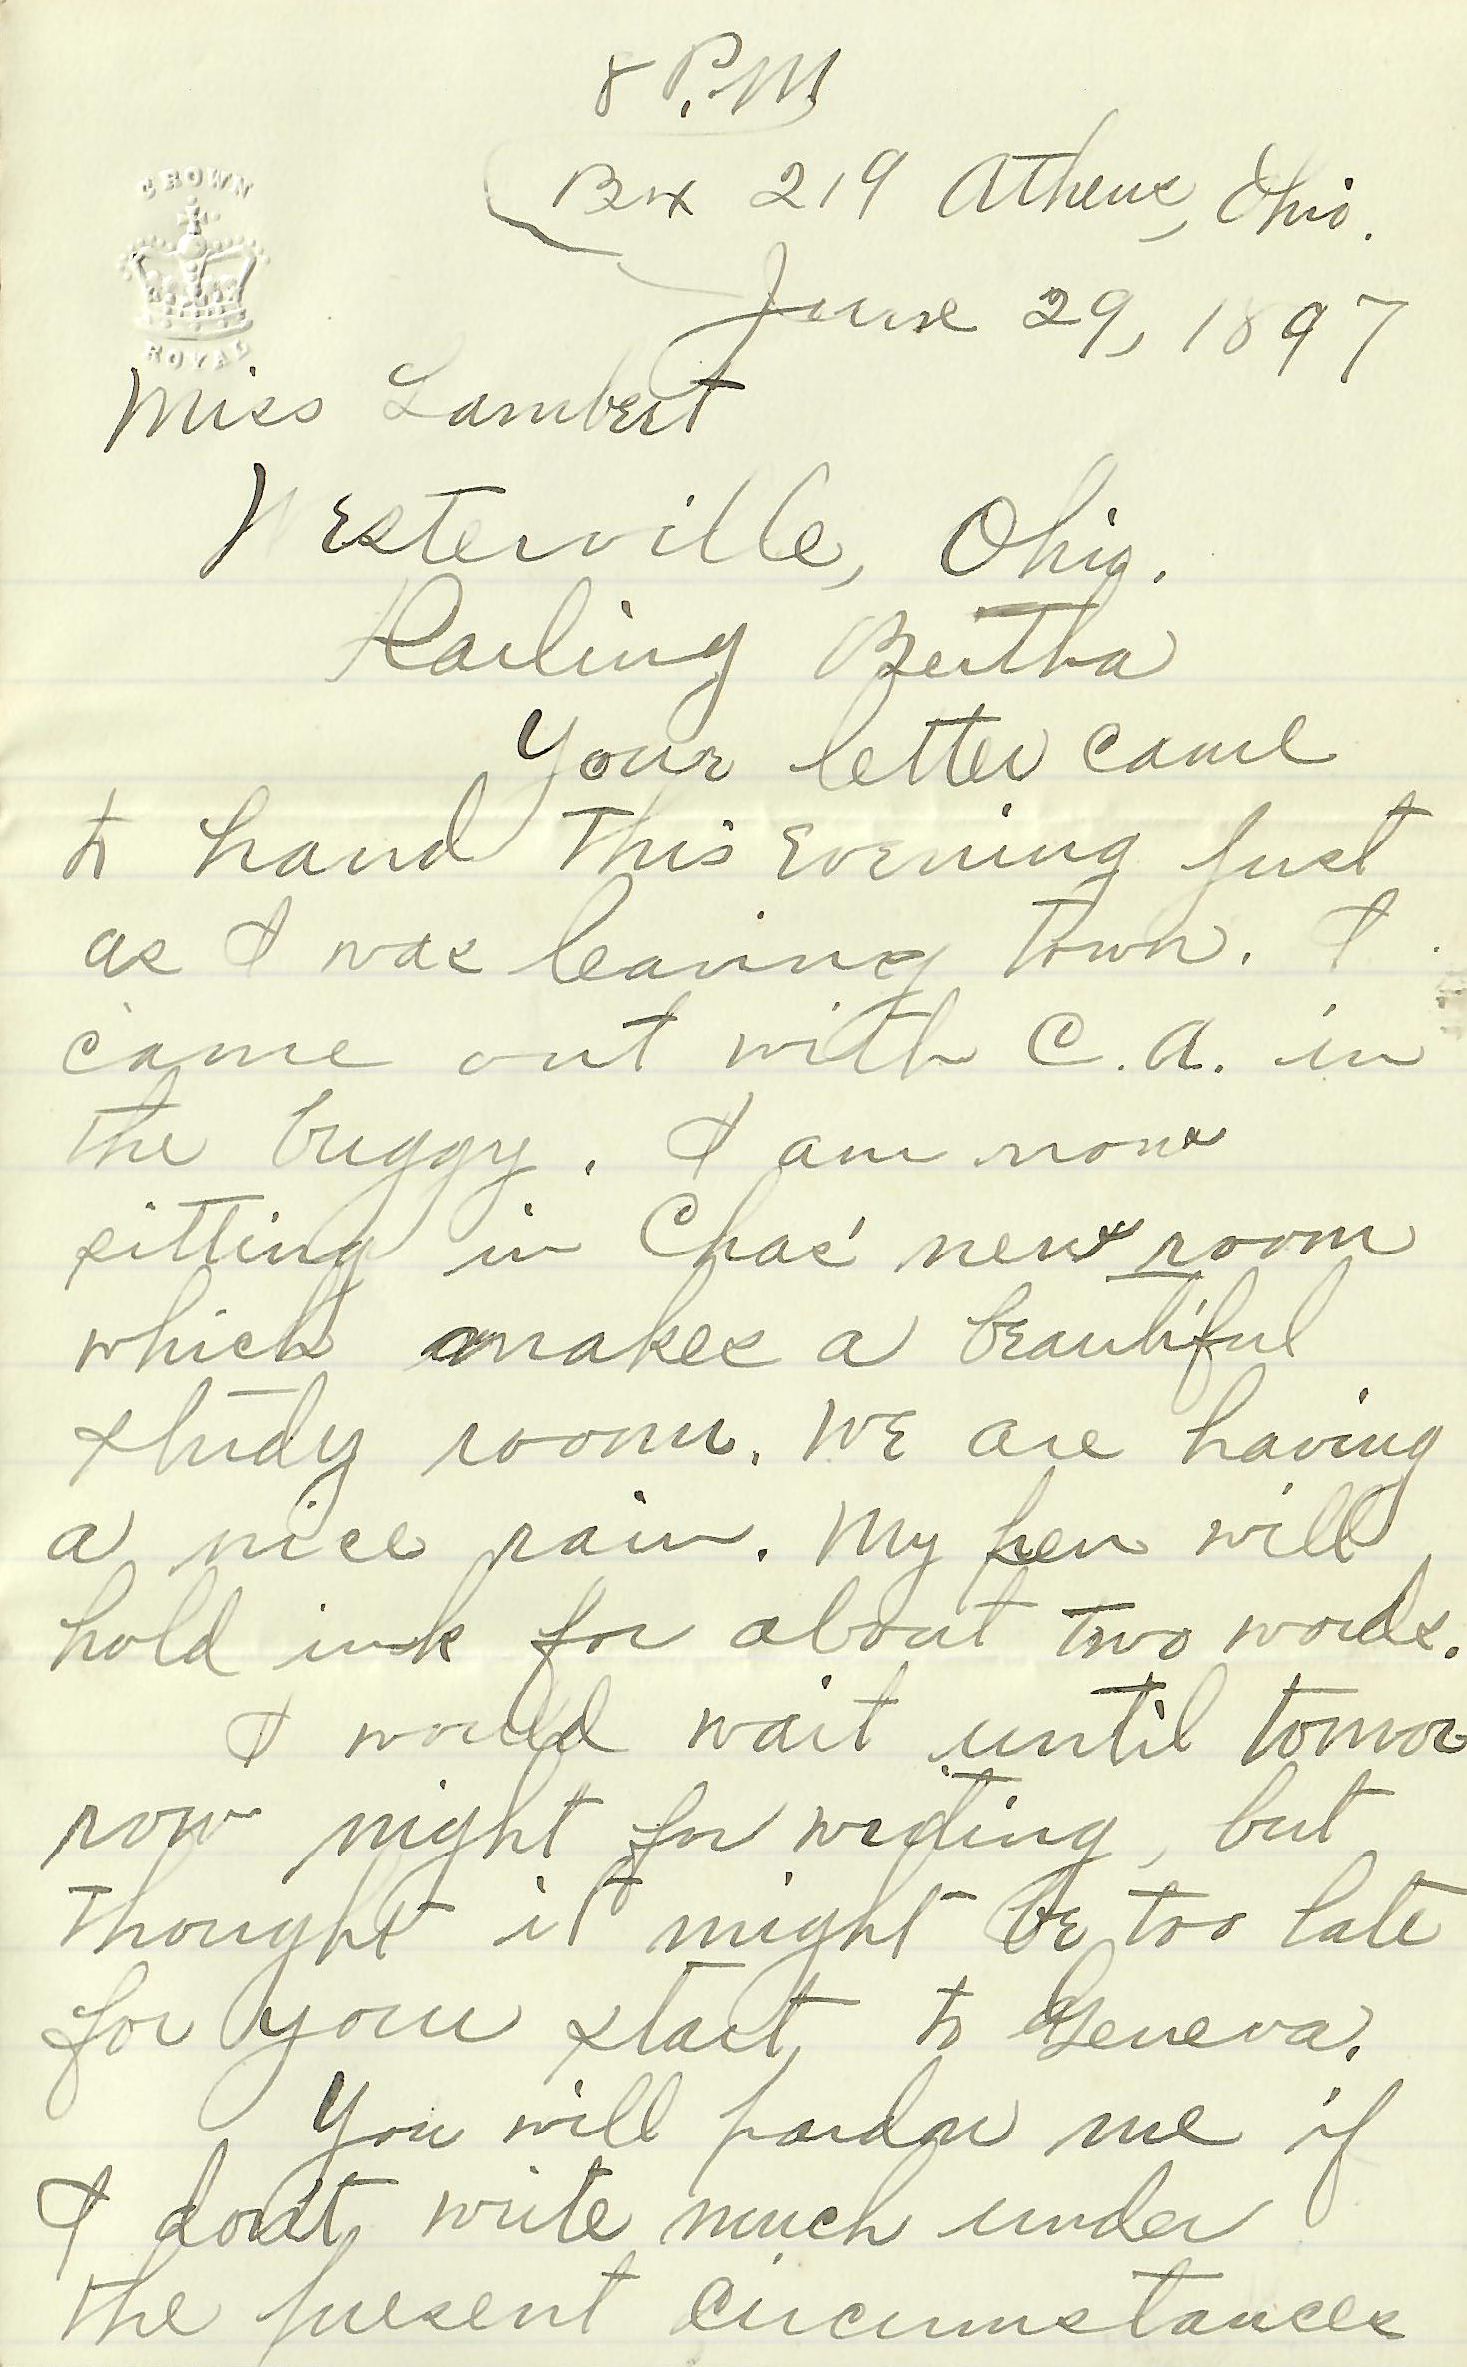 8 P.M
Box 219 Athens, Ohio.
CROWN
ROYAL
June 29, 1897
Miss Lambert
Westerville, Ohio.
Darling Bertha
Your letter came
to hand this evening just
as I was leaving town. I
came out with C.A. in
the buggy. I am now
sitting in Chas' new room
which makes a beautiful
study room. We are having
a nice rain. My pen will
hold ink for about two words.
I would wait until tomor
row night for writing, but
thought it might be too late
for your start to Geneva.
You will pardon me if
I don't write much under
the present circumstances